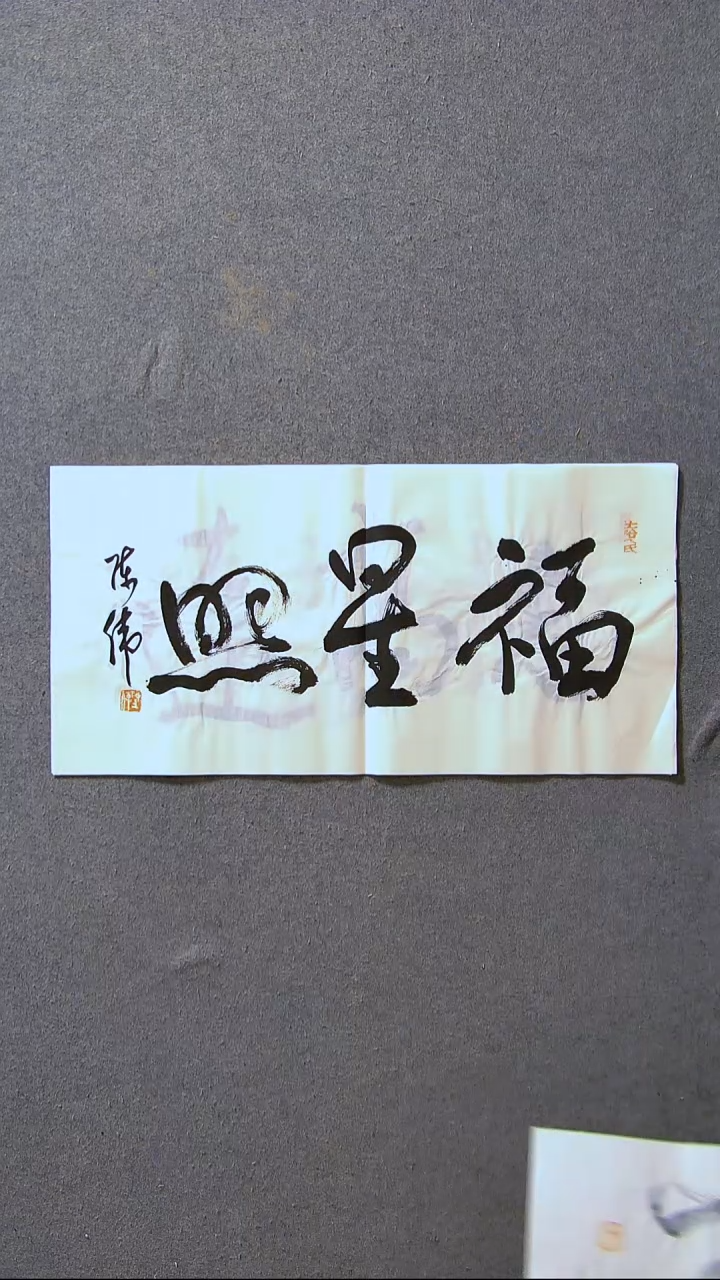 福星照
陈伟